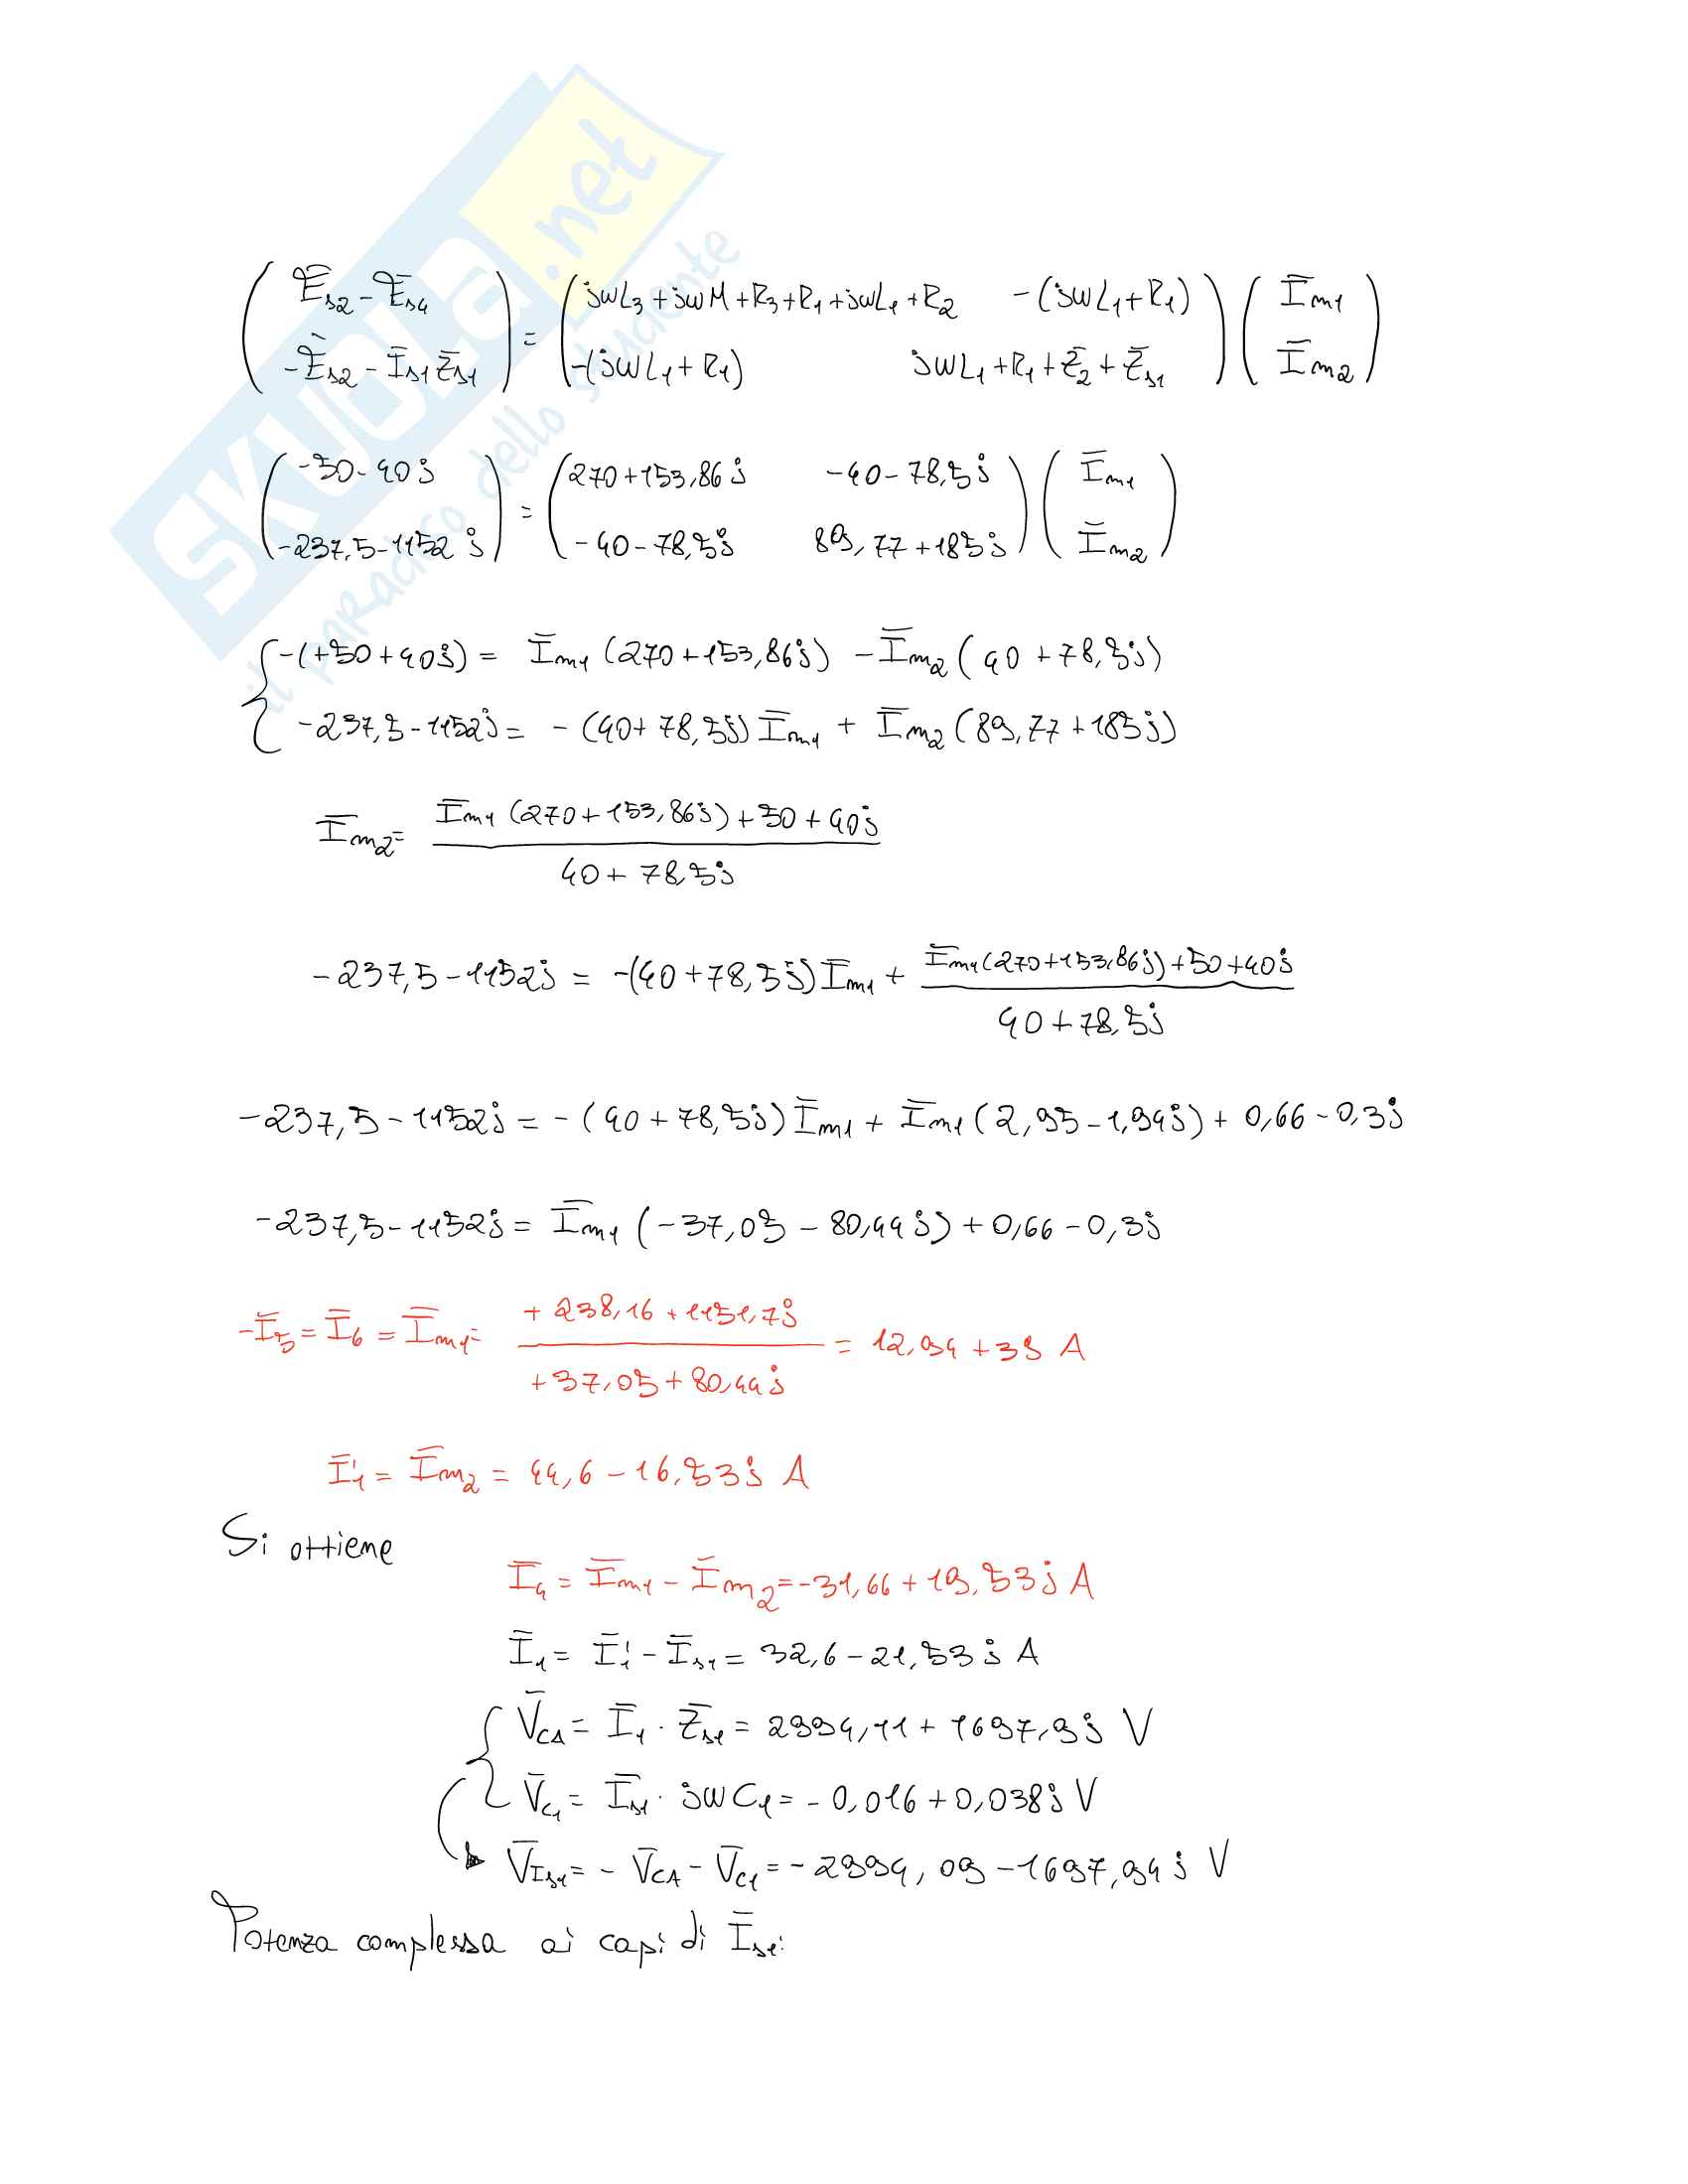 SKUOLA.net
il paradiso dello studente
( Ēs2 - Ēs4 ) = ( jωL3 + jωM + R3 + R1 + jωL1 + R2   -(jωL1 + R1) ) ( Īm1 )
( -Ēs2 - Īs1 Z̄s1 )   ( -(jωL1 + R1)   jωL1 + R1 + Z̄2 + Z̄s1 ) ( Īm2 )
( -50 - 40j ) = ( 270 + 153,86j   -40 - 78,5j ) ( Īm1 )
( -237,5 - 1152j )   ( -40 - 78,5j   89,77 + 185j ) ( Īm2 )
{ -(+50 + 40j) = Īm1 (270 + 153,86j) - Īm2 (40 + 78,5j)
-237,5 - 1152j = -(40 + 78,5j) Īm1 + Īm2 (89,77 + 185j)
Īm2 = Īm1 (270 + 153,86j) + 50 + 40j
40 + 78,5j
-237,5 - 1152j = -(40 + 78,5j) Īm1 + Īm1 (270 + 153,86j) + 50 + 40j
40 + 78,5j
-237,5 - 1152j = -(40 + 78,5j) Īm1 + Īm1 (2,95 - 1,94j) + 0,66 - 0,3j
-237,5 - 1152j = Īm1 (-37,05 - 80,44j) + 0,66 - 0,3j
-Ī5 = Ī6 = Īm1 = +238,16 + 1151,7j = 12,94 + 3j A
+37,05 + 80,44j
Ī'1 = Īm2 = 44,6 - 16,53j A
Si ottiene
Ī4 = Īm1 - Īm2 = -31,66 + 19,53j A
Ī1 = Ī'1 - Īs1 = 32,6 - 21,53j A
{ V̄CA = Ī1 · Z̄s1 = 2994,11 + 1697,9j V
V̄C1 = Īs1 · jωC1 = -0,016 + 0,038j V
V̄Is1 = -V̄CA - V̄C1 = -2994,09 - 1697,94j V
Potenza complessa ai capi di Īs1: